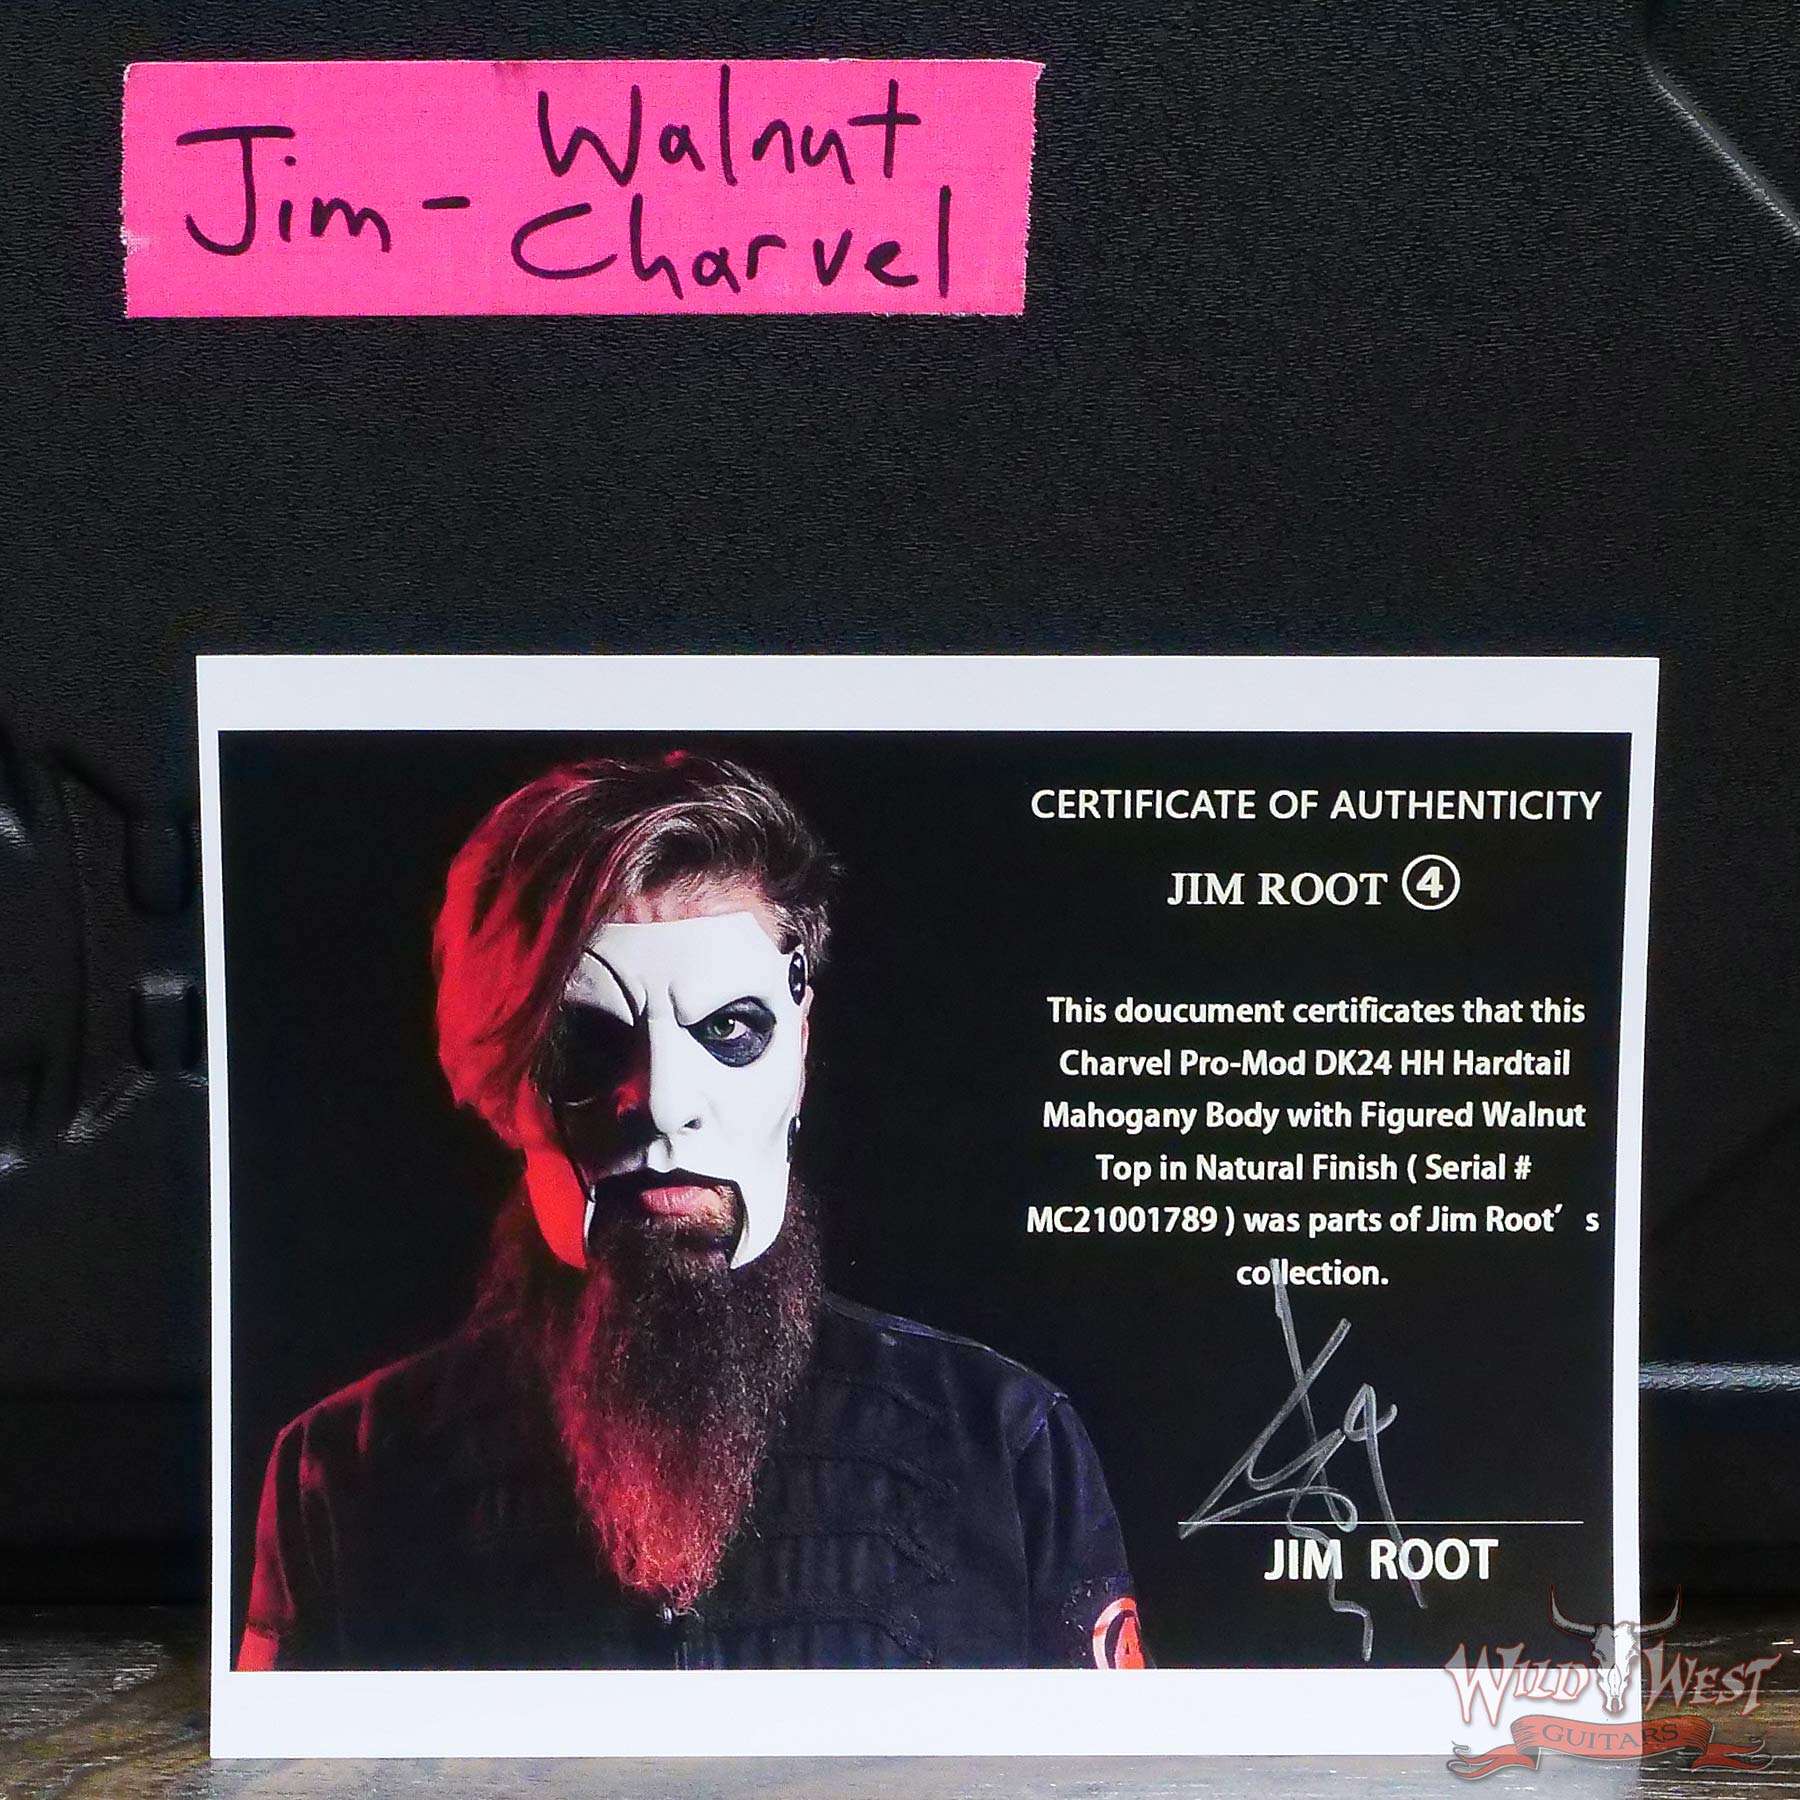 Jim - Walnut
Charvel
CERTIFICATE OF AUTHENTICITY
JIM ROOT ④
This doucument certificates that this
Charvel Pro-Mod DK24 HH Hardtail
Mahogany Body with Figured Walnut
Top in Natural Finish ( Serial #
MC21001789 ) was parts of Jim Root's
collection.
JIM ROOT
WILD WEST
GUITARS